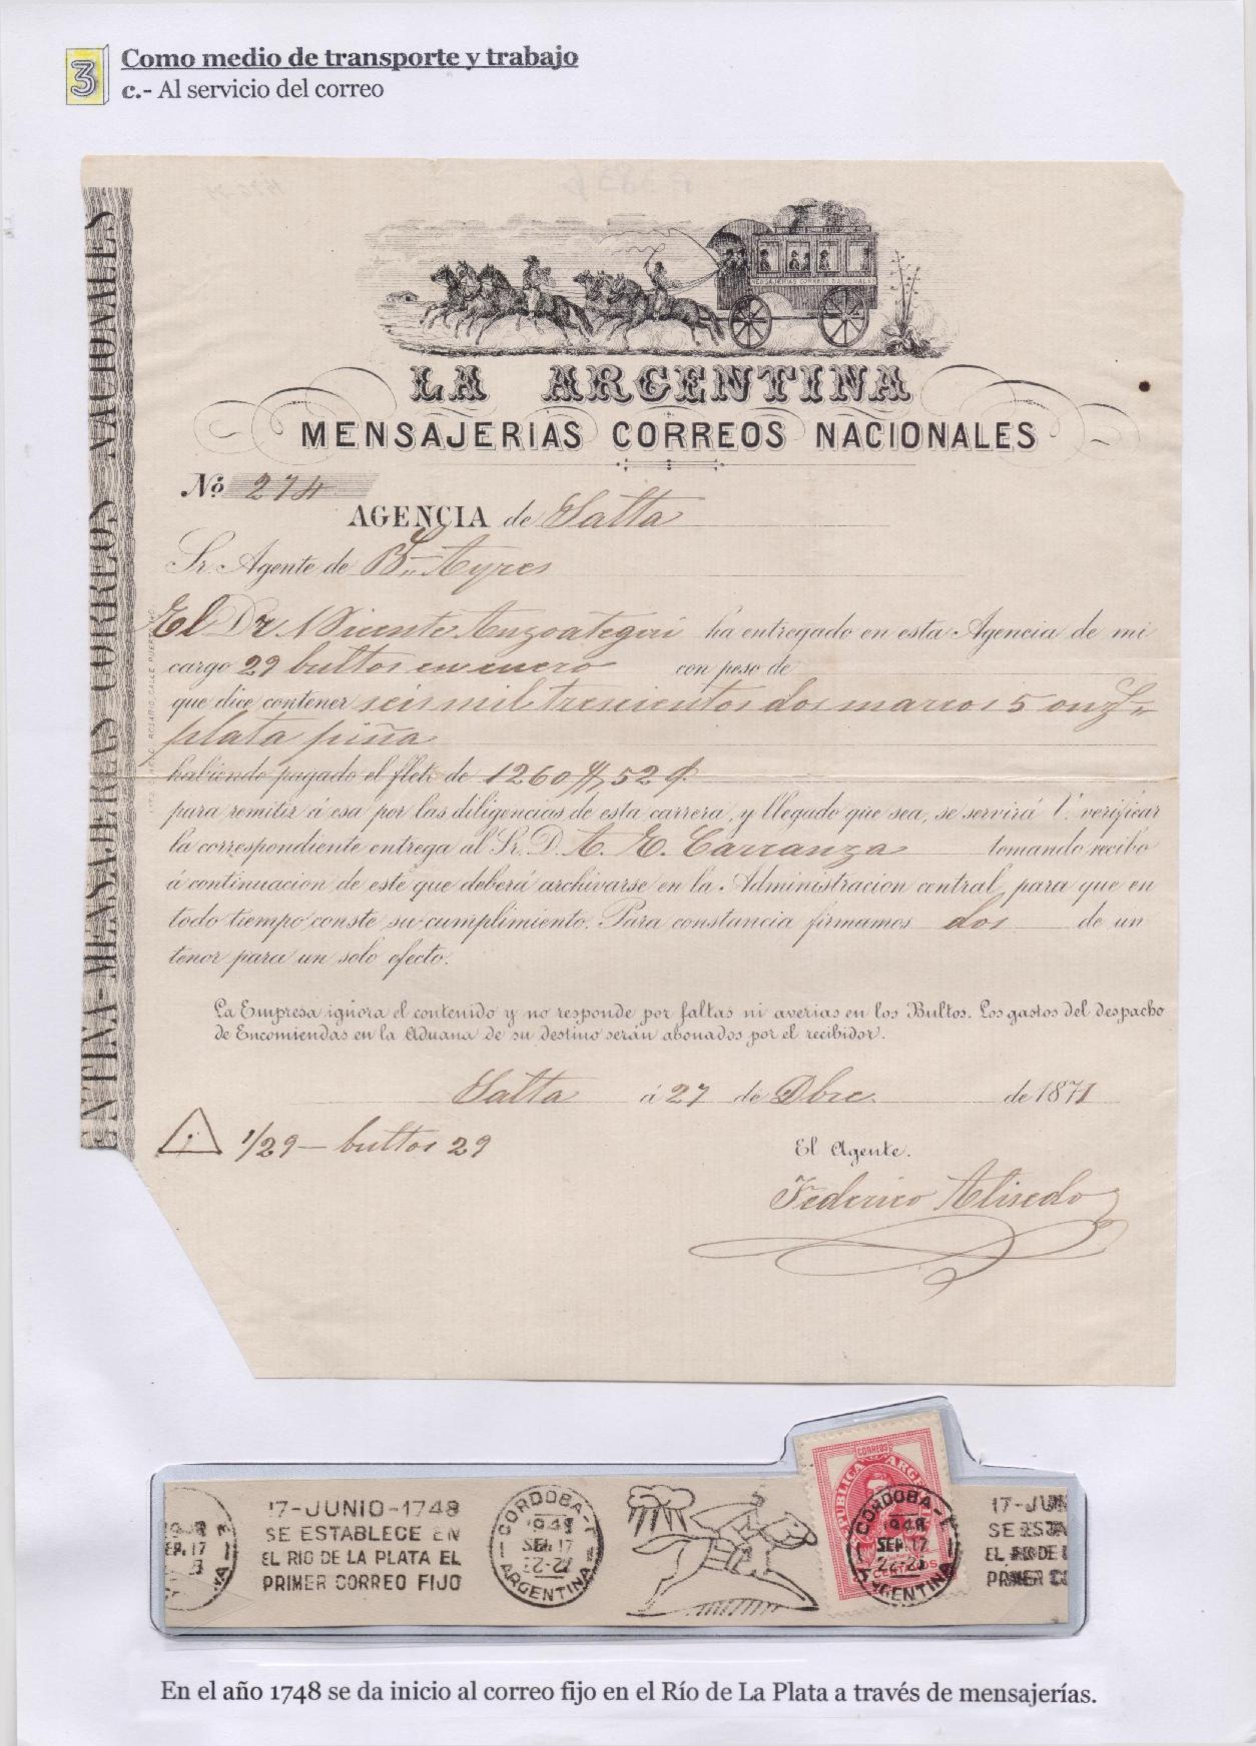 3 Como medio de transporte y trabajo
c.- Al servicio del correo
MENSAJERIAS CORREOS NACIONALES
LA ARGENTINA
MENSAJERIAS CORREOS NACIONALES
No 274
AGENCIA de Salta
Sr. Agente de Bs Ayres
El Dr Vicente Anzoategui ha entregado en esta Agencia de mi
cargo 29 bultos en cuero con peso de
que dice contener seis mil trescientos dos marcos 5 onzs
plata piña
habiendo pagado el flete de 1260 $ 52 c
para remitir á esa por las diligencias de esta carrera, y llegado que sea, se servirá V. verificar
la correspondiente entrega al Sr. D. A. E. Carranza tomando recibo
á continuacion de este que deberá archivarse en la Administracion central, para que en
todo tiempo conste su cumplimiento. Para constancia firmamos dos de un
tenor para un solo efecto.
La Empresa ignora el contenido y no responde por faltas ni averias en los Bultos. Los gastos del despacho
de Encomiendas en la Aduana de su destino serán abonados por el recibidor.
Salta á 27 de Dbre. de 1871
1/29 - bultos 29
El Agente.
Federico Alisedo
ENTINA-MENSAJERIAS CORREOS NACIONALES
17-JUNIO-1748
SE ESTABLECE EN
EL RIO DE LA PLATA EL
PRIMER CORREO FIJO
CORDOBA-1
1948
SEP. 17
22-23
ARGENTINA
CORREOS
REPUBLICA ARGENTINA
CORDOBA-1
1948
SEP. 17
22-23
ARGENTINA
17-JUN
SE ESTA
EL RIO DE L
PRIMER CO
En el año 1748 se da inicio al correo fijo en el Río de La Plata a través de mensajerías.